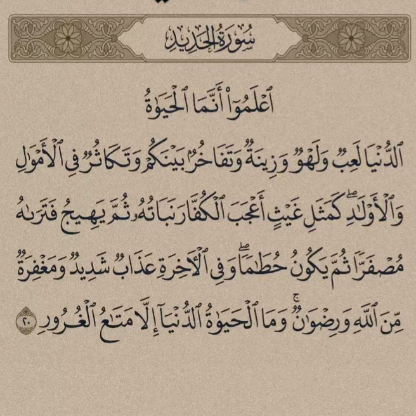 سُورَةُ الحَدِيدِ
ٱعْلَمُوٓا۟ أَنَّمَا ٱلْحَيَوٰةُ
ٱلدُّنْيَا لَعِبٌ وَلَهْوٌ وَزِينَةٌ وَتَفَاخُرٌۢ بَيْنَكُمْ وَتَكَاثُرٌ فِى ٱلْأَمْوَٰلِ
وَٱلْأَوْلَٰدِ ۖ كَمَثَلِ غَيْثٍ أَعْجَبَ ٱلْكُفَّارَ نَبَاتُهُۥ ثُمَّ يَهِيجُ فَتَرَىٰهُ
مُصْفَرًّا ثُمَّ يَكُونُ حُطَٰمًا ۖ وَفِى ٱلْءَاخِرَةِ عَذَابٌ شَدِيدٌ وَمَغْفِرَةٌ
مِّنَ ٱللَّهِ وَرِضْوَٰنٌ ۚ وَمَا ٱلْحَيَوٰةُ ٱلدُّنْيَآ إِلَّا مَتَٰعُ ٱلْغُرُورِ ٢٠